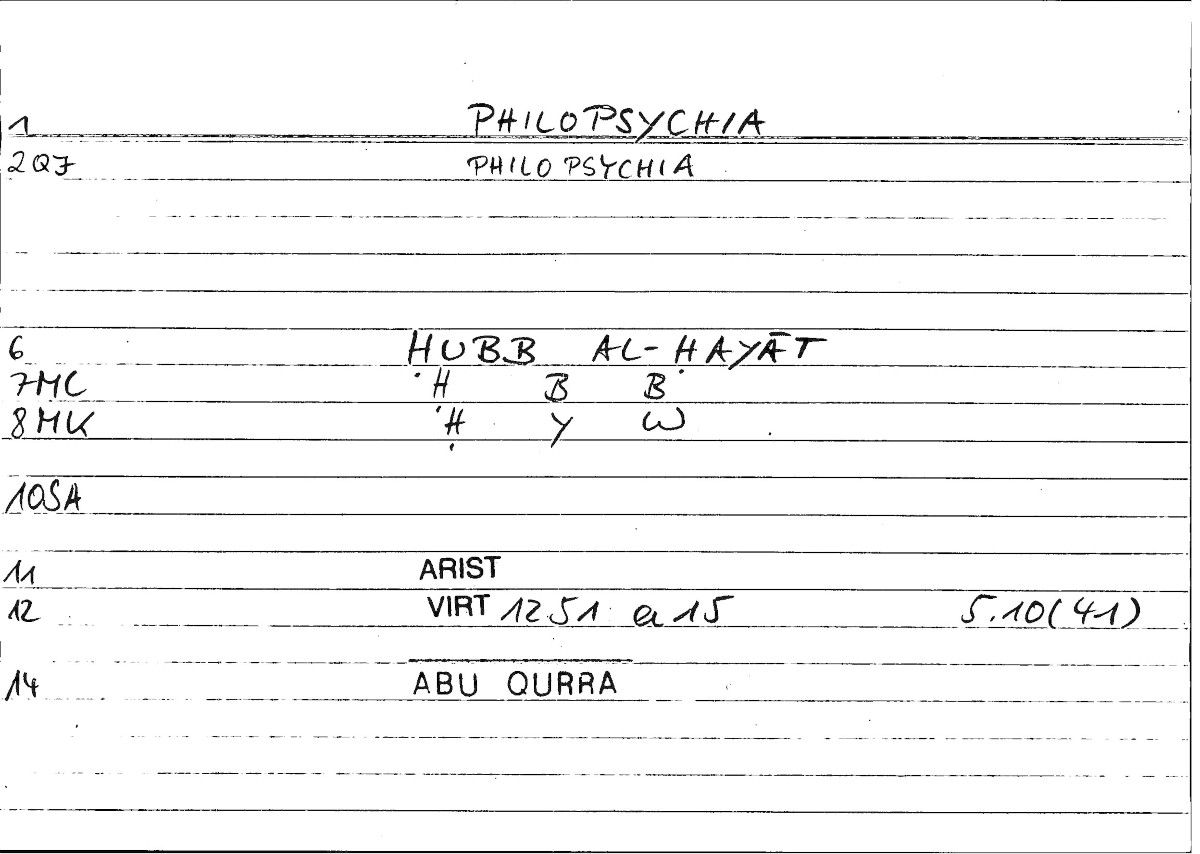 1 PHILOPSYCHIA
2QF PHILOPSYCHIA
6 ḤUBB AL-ḤAYĀT
7MC Ḥ B B
8MK Ḥ Y W
10SA
11 ARIST
12 VIRT 1251 a 15 5.10(41)
14 ABU QURRA